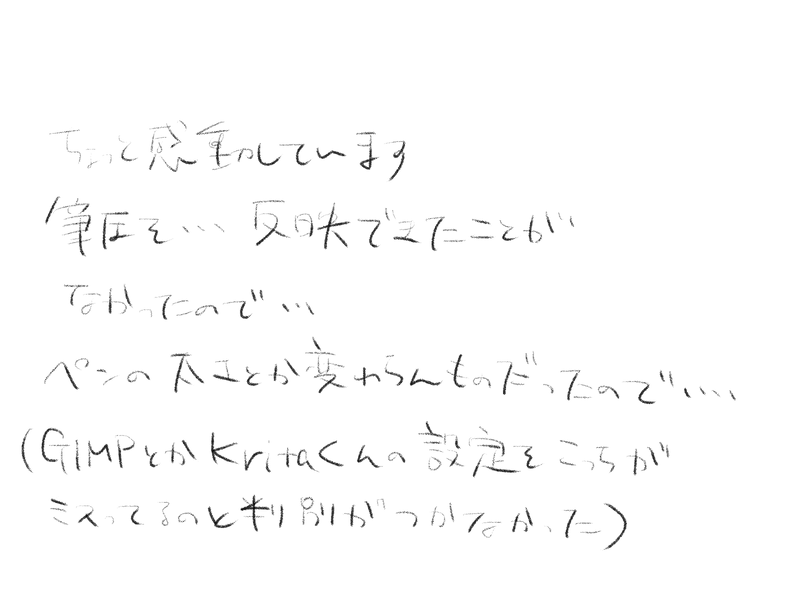 ちょっと感動しています
筆圧を… 反映できたことが
なかったので…
ペンの太さとか変わらんものだったので‥‥
(GIMPとかKritaくんの設定をこっちが
ミスってるのと判別がつかなかった)